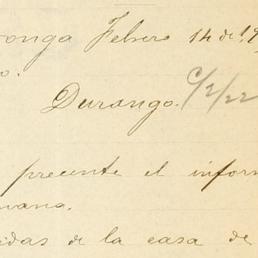 onga Febero 14 de 19
o.
Durango. C/2/22
precente el inform
mano.
idas de la casa de